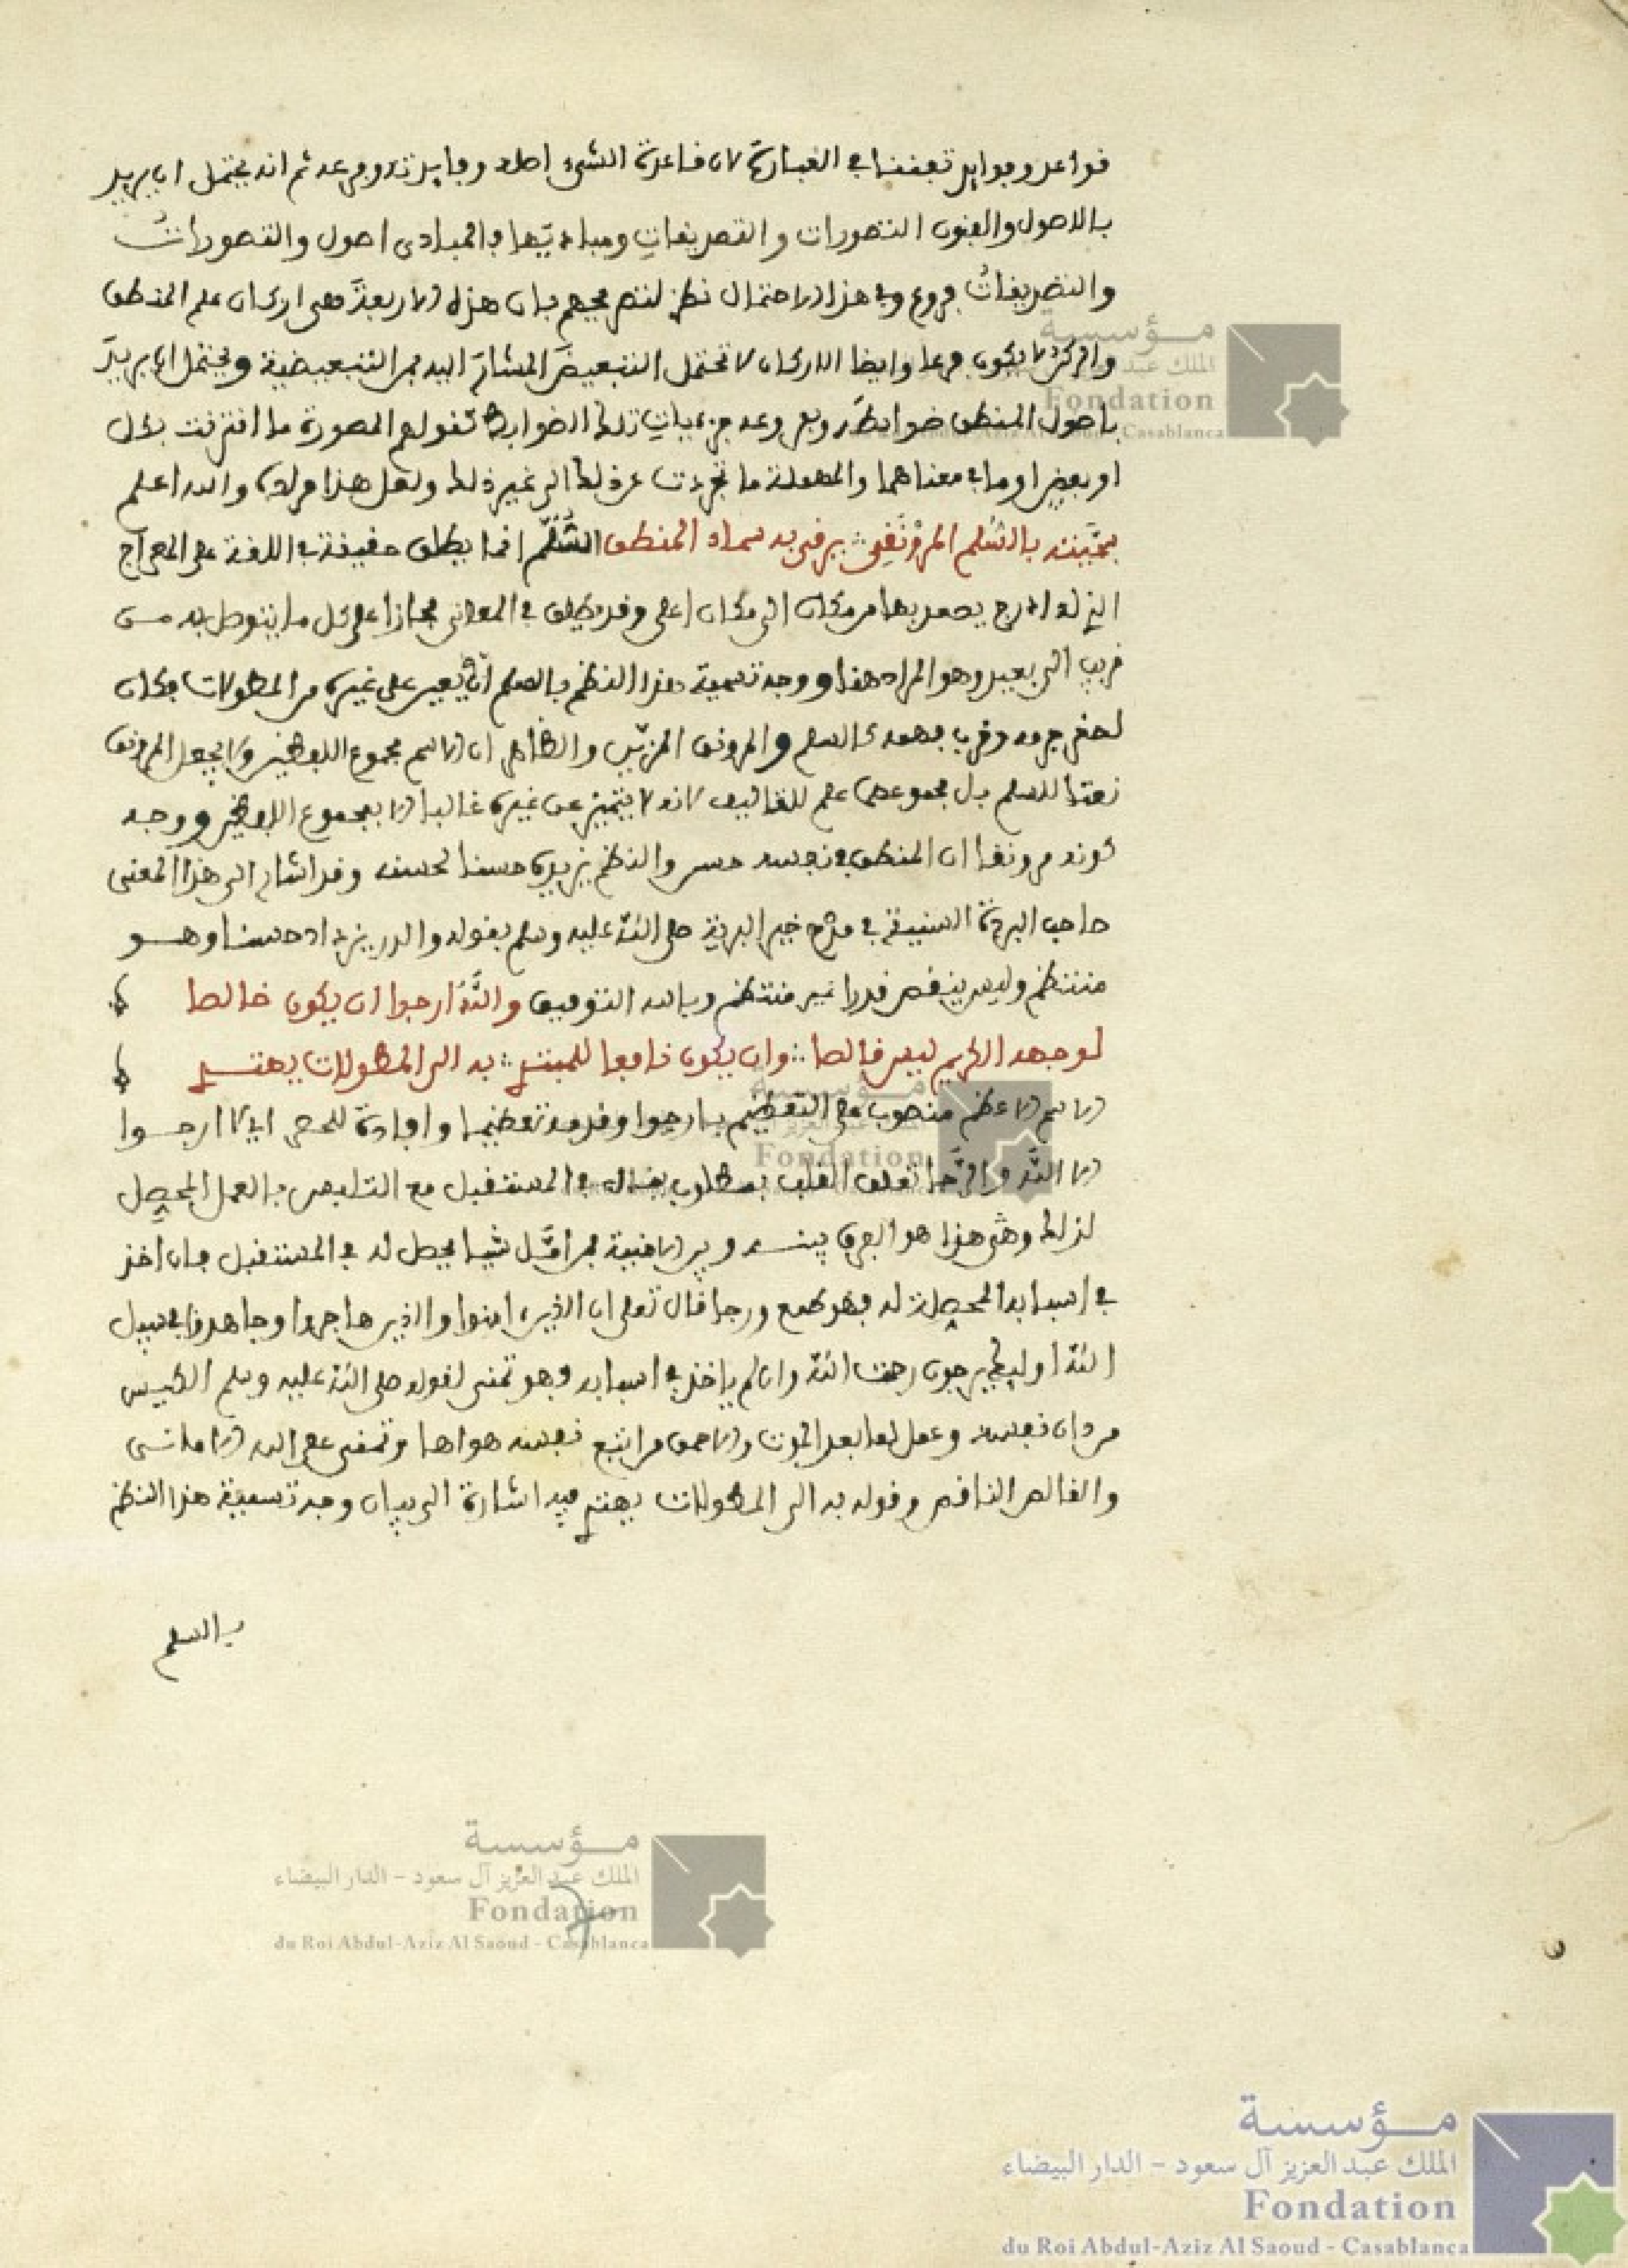 قواعد وفوائد تفننا في العبارة لان قاعدة الشيء اصله وفايدته فرعه ثم انه يحتمل ان يريد
بالاصول والفنون التصورات والتصديقات ومباديها فالمبادى اصول والتصورات
والتصديقات فروع وفي هذا الاحتمال نظر لتصريحهم بان هذه الاربعة هي اركان علم المنطق
والركن لا يكون فرعا وايضا الاركان لا تحتمل التبعيض المشار اليه بمن التبعيضية ويحتمل ان يريد
باصول المنطق ضوابطه وبفروعه جزءيات تلك الضوابط كقولهم المسورة ما اقترنت بكل
او بعض او ما في معناهما والمهملة ما تجردت عن ذلك الى غير ذلك ولعل هذا مراده والله اعلم
سميته بالسلم المرونق ∴ يرقى به سماء المنطق السلم انما يطلق حقيقة في اللغة على المعراج
الذي له ادرج يصعد بها من مكان الى مكان اعلى وقد يطلق في المعاني مجازا على كل ما يتوصل به من
قريب الى بعيد وهو المراد هنا ووجه تسمية هذا النظم بالسلم انه يعين على غيره من المطولات فكان
لصغر جرمه وقرب فهمه كالسلم والمرونق المزين والظاهر ان الاسم مجموع اللفظين ولا يجعل المرونق
نعتا للسلم بل مجموعهما علم للتاليف لانه لا يتميز عن غيره غالبا الا بمجموع اللفظين ووجه
كونه مرونقا ان المنطق في نفسه حسن والنظم يزيده حسنا لحسنه وقد اشار الى هذا المعنى
صاحب البردة السنية في مدح خير البرية صلى الله عليه وسلم بقوله والدر يزداد حسنا وهو
منتظم وليس ينقص قدرا غير منتظم وبالله التوفيق والله ارجوا ان يكون خالصا
لوجهه الكريم ليس قالصا ∴ وان يكون نافعا للمبتدي ∴ به الى المطولات يهتدي
الاسم الاعظم منصوب على التعظيم بارجوا وقدمه تعظيما وافادة للحصر اي لا ارجوا
الا الله والرجا تعلق القلب بمطلوب ينال في المستقبل مع التلبس بالعمل المحصل
لذلك وهذا هو الفرق بينه وبين الامنية فمن امل شيا يحصل له في المستقبل فان اخذ
في اسبابه المحصلة له فهو طمع ورجا قال تعلى ان الذين امنوا والذين هاجروا وجاهدوا في سبيل
الله اوليك يرجون رحمت الله وان لم ياخذ في اسبابه فهو تمنى لقوله صلى الله عليه وسلم الكيس
من دان نفسه وعمل لما بعد الموت والاحمق من اتبع نفسه هواها وتمنى على الله الامانى
والقالص الناقص وقوله به الى المطولات يهتدي فيه اشارة الى بيان وجه تسمية هذا النظم
بالسلم
مؤسسة
الملك عبد العزيز آل سعود - الدار البيضاء
Fondation
du Roi Abdul-Aziz Al Saoud - Casablanca